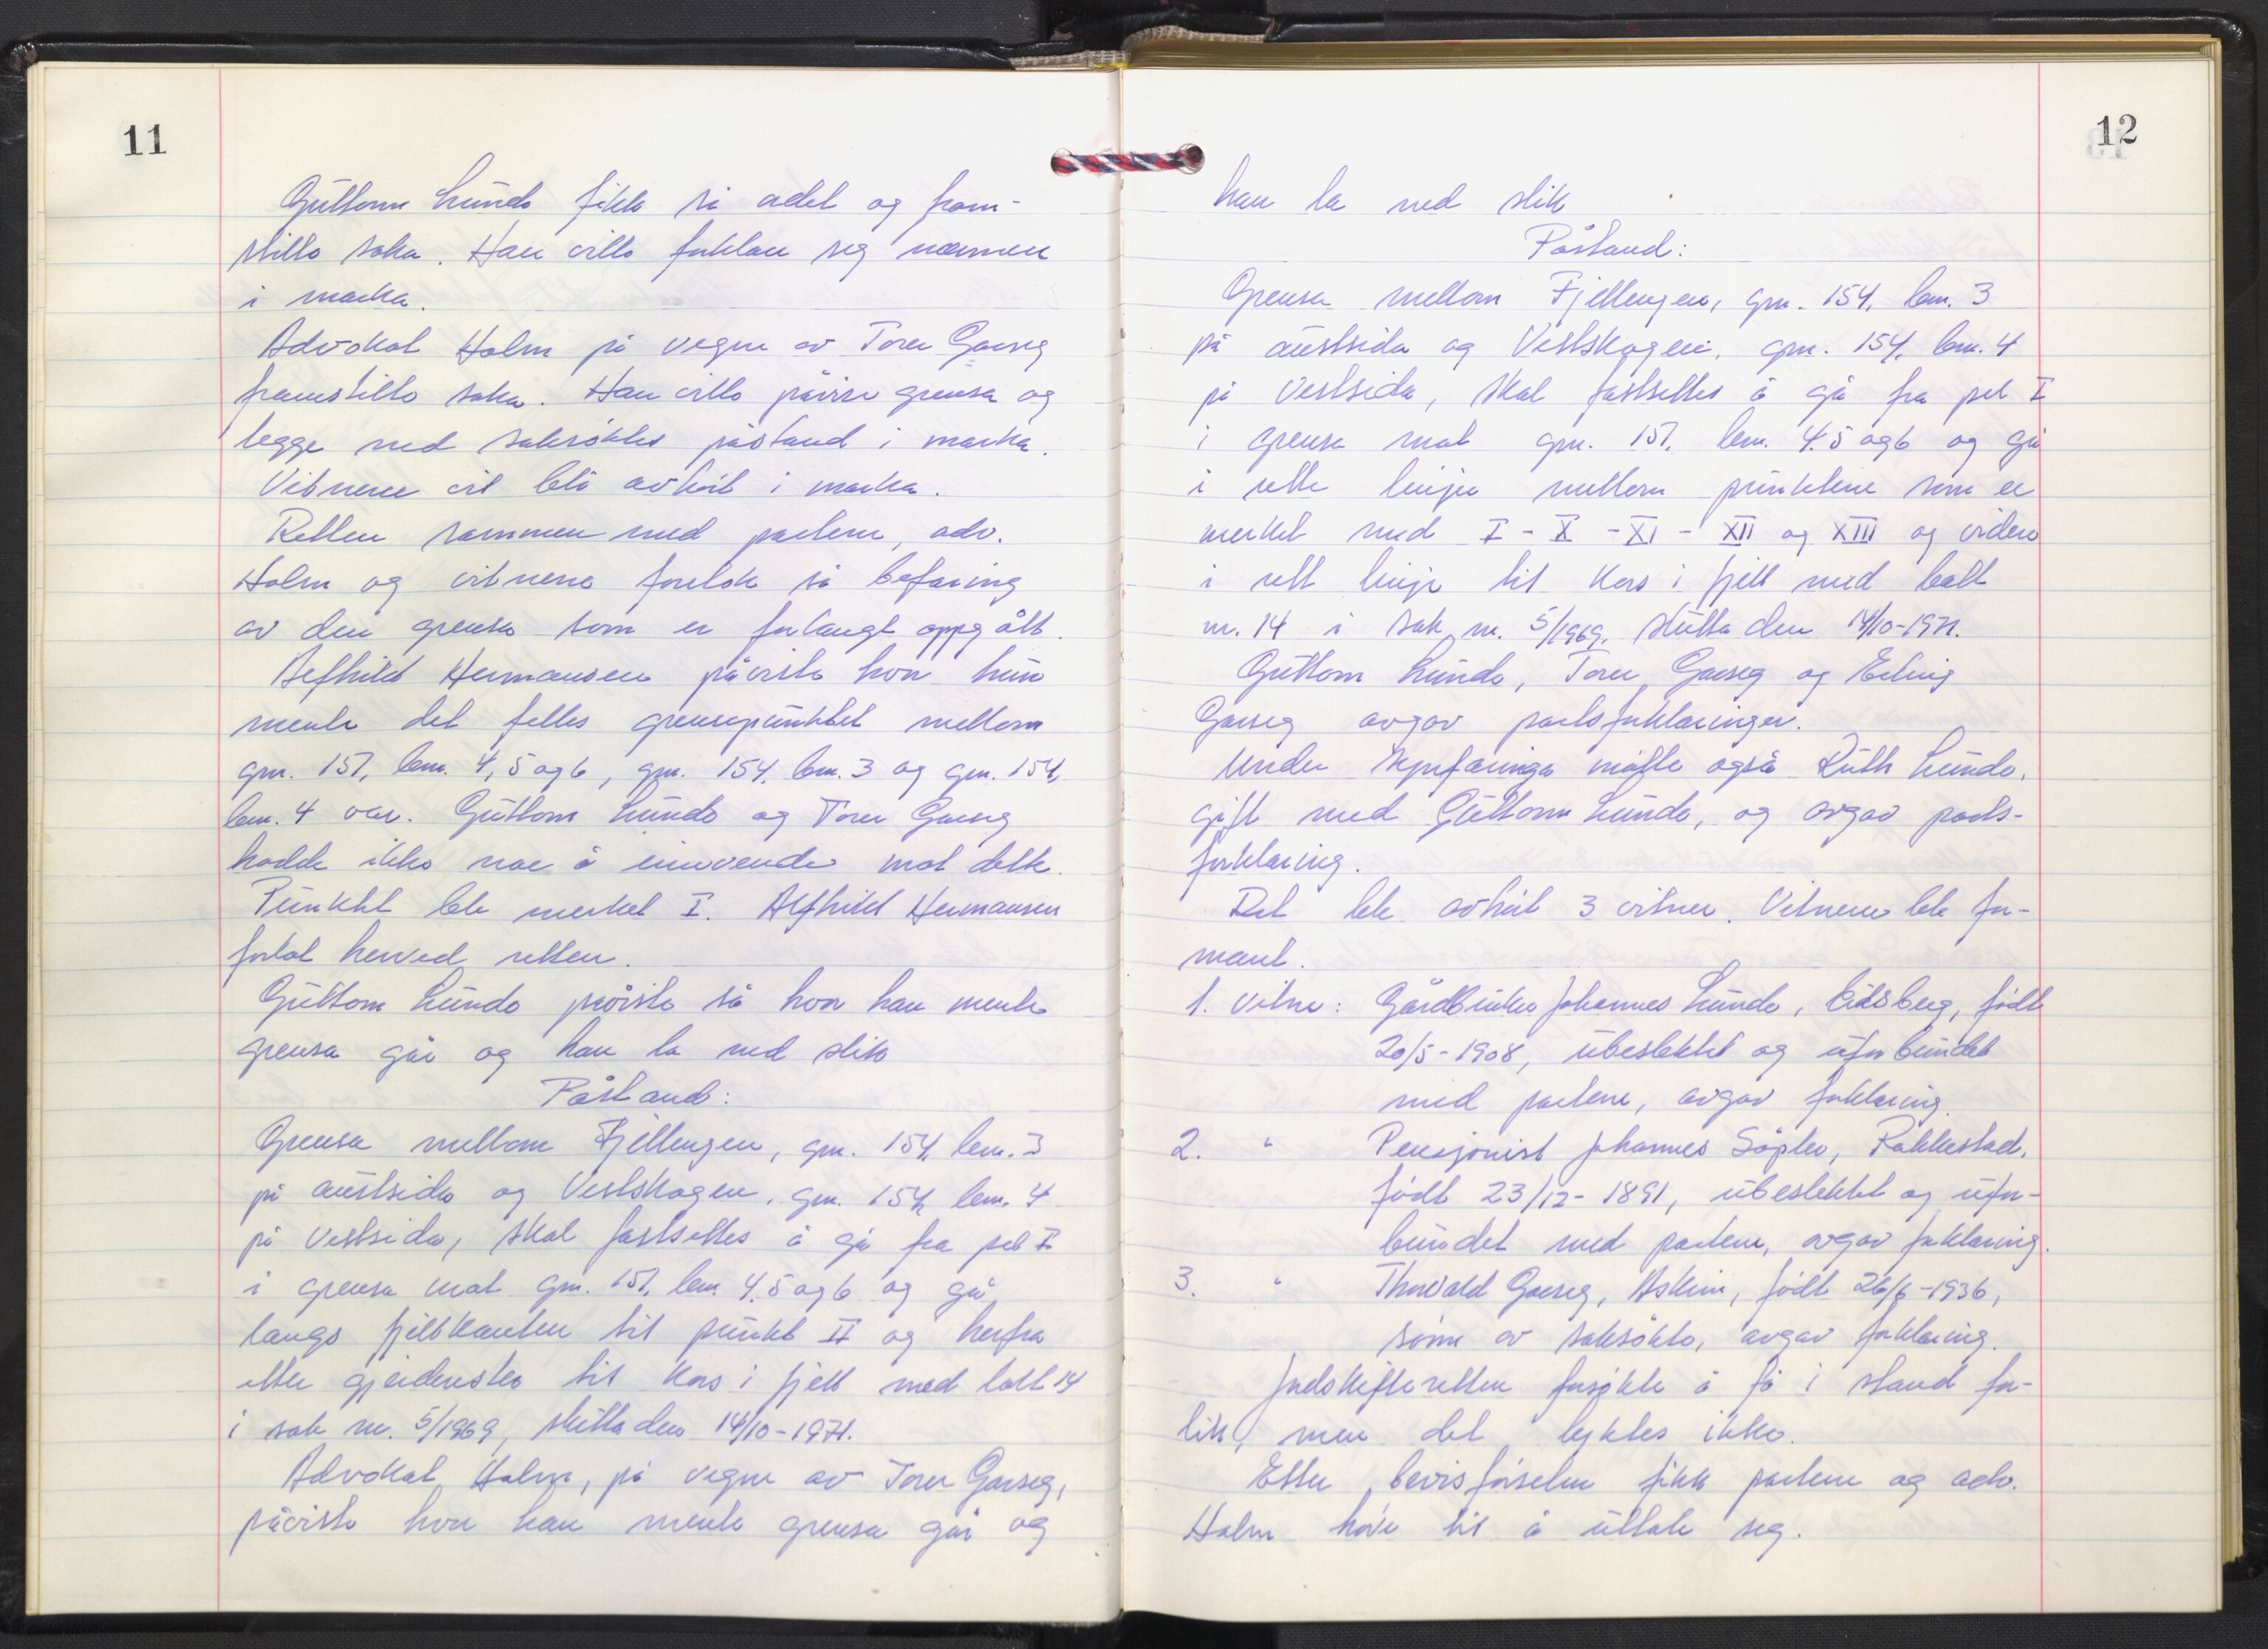 11
Guttorm Lunde fikk så ordet og fram-
stilte saka. Han ville forklare seg nærmere
i marka.
Advokat Holm på vegne av Tore Garseg
framstilte saka. Han ville påvise grensa og
legge ned saksøktes påstand i marka.
Vitnene vil bli avhørt i marka.
Retten sammen med partene, adv.
Holm og vitnene foretok så befaring
av den grensa som er forlangt oppgått.
Alfhild Hermansen påviste hvor hun
mente det felles grensepunktet mellom
gnr. 157, bnr. 4, 5 og 6, gnr. 154, bnr. 3 og gnr. 154,
bnr. 4 var. Guttorm Lunde og Tore Garseg
hadde ikke noe å innvende mot dette.
Punktet ble merket I. Alfhild Hermansen
forlot herved retten.
Guttorm Lunde påviste så hvor han mente
grensa går og han la ned slik
Påstand:
Grensa mellom Fjellengen, gnr. 154, bnr. 3
på austsida og Vestskogen, gnr. 154, bnr. 4
på vestsida, skal fastsettes å gå fra pkt I
i grensa mot gnr. 157, bnr. 4, 5 og 6 og gå
langs fjellkanten til punkt II og herfra
etter gjerdester til kors i fjell med bolt 14
i sak nr. 5/1969, slutta den 14/10-1971.
Advokat Holm, på vegne av Tore Garseg,
påviste hvor han mente grensa går og
12
han la ned slik
Påstand:
Grensa mellom Fjellengen, gnr. 154, bnr. 3
på austsida og Vestskogen, gnr. 154, bnr. 4
på vestsida, skal fastsettes å gå fra pkt I
i grensa mot gnr. 157, bnr. 4.5 og 6 og gå
i rette linjer mellom punktene som er
merket med I - X - XI - XII og XIII og videre
i rett linje til kors i fjell med bolt
nr. 14 i sak nr. 5/1969, slutta den 14/10-1971.
Guttorm Lunde, Tore Garseg og Erling
Garseg avgav partsforklaringer.
Under synfaringa møtte også Ruth Lunde,
gift med Guttorm Lunde, og avgav parts-
forklaring.
Det ble avhørt 3 vitner. Vitnene ble for-
mant.
1. vitne: Gårdbruker Johannes Lunde, Eidsberg, født
20/5-1908, ubeslektet og uforbundet
med partene, avgav forklaring.
2. " Pensjonist Johannes Søpler, Rakkestad,
født 23/12-1891, ubeslektet og ufor-
bundet med partene, avgav forklaring.
3. " Thorvald Garseg, Askim, født 26/6-1936,
sønn av saksøkte, avgav forklaring.
Jordskifteretten forsøkte å få i stand for-
lik, men det lyktes ikke.
Etter bevisførselen fikk partene og adv.
Holm høve til å uttale seg.